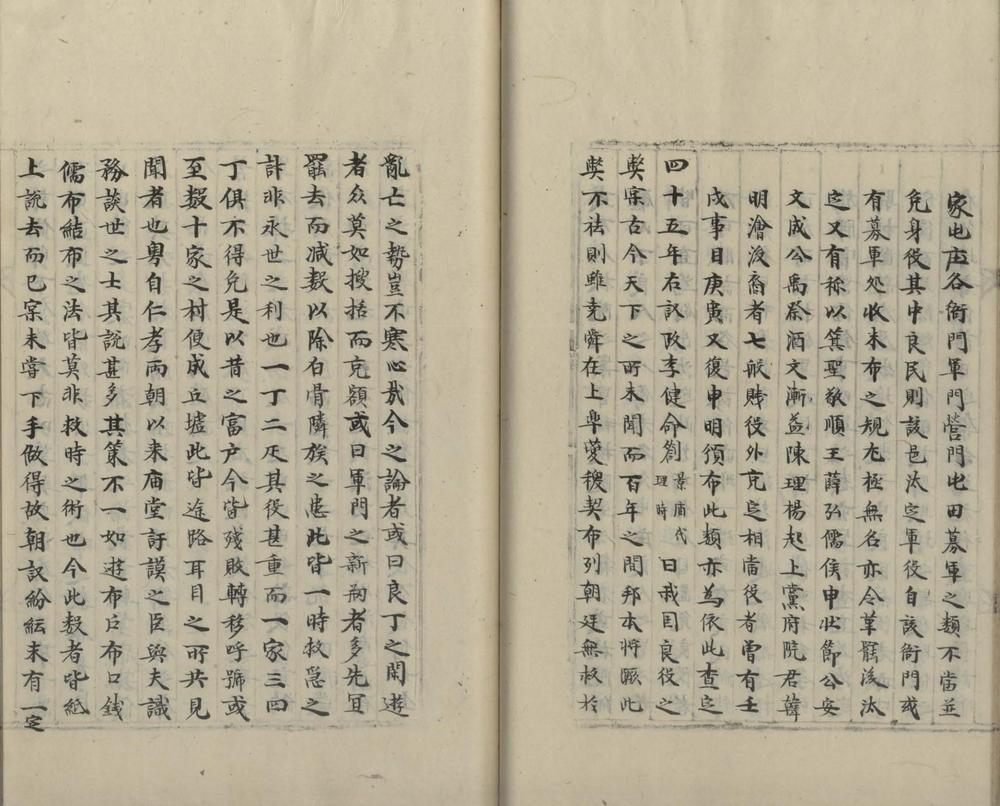 家屯庄各衙門軍門營門屯田募軍之類不當並
免身役其中良民則該邑汰定軍役自該衙門或
有募軍處收未布之規尤極無名亦令革罷後汰
定又有称以箕聖敬順王薛弘儒侯申壯節公安
文成公禹祭酒文漸益陳理楊起上黨府院君韓
明澮後裔者七般賤役外充定相當役者曾有壬
戌事目庚寅又復申明頒布此類亦為依此查定
四十五年右議政李健命劄景庙代理時曰我國良役之
獘寔古今天下之所未聞而百年之間邦本將蹶此
獘不祛則雖堯舜在上臯夔稷契布列朝廷無救於
亂亡之勢豈不寒心哉今之論者或曰良丁之閑遊
者众莫如搜括而充額或曰軍門之新刱者多先宜
罷去而减數以除白骨隣族之患此皆一時救急之
計非永世之利也一丁二疋其役甚重而一家三四
丁俱不得免是以昔之富户今皆殘敗轉移呼號或
至數十家之村便成丘墟此皆途路耳目之所共見
聞者也粤自仁孝兩朝以来庙堂訏謨之臣與夫識
務談世之士其說甚多其策不一如遊布户布口錢
儒布結布之法皆莫非救時之術也今此数者皆紙
上說去而已寔未嘗下手做得故朝議紛紜未有一定